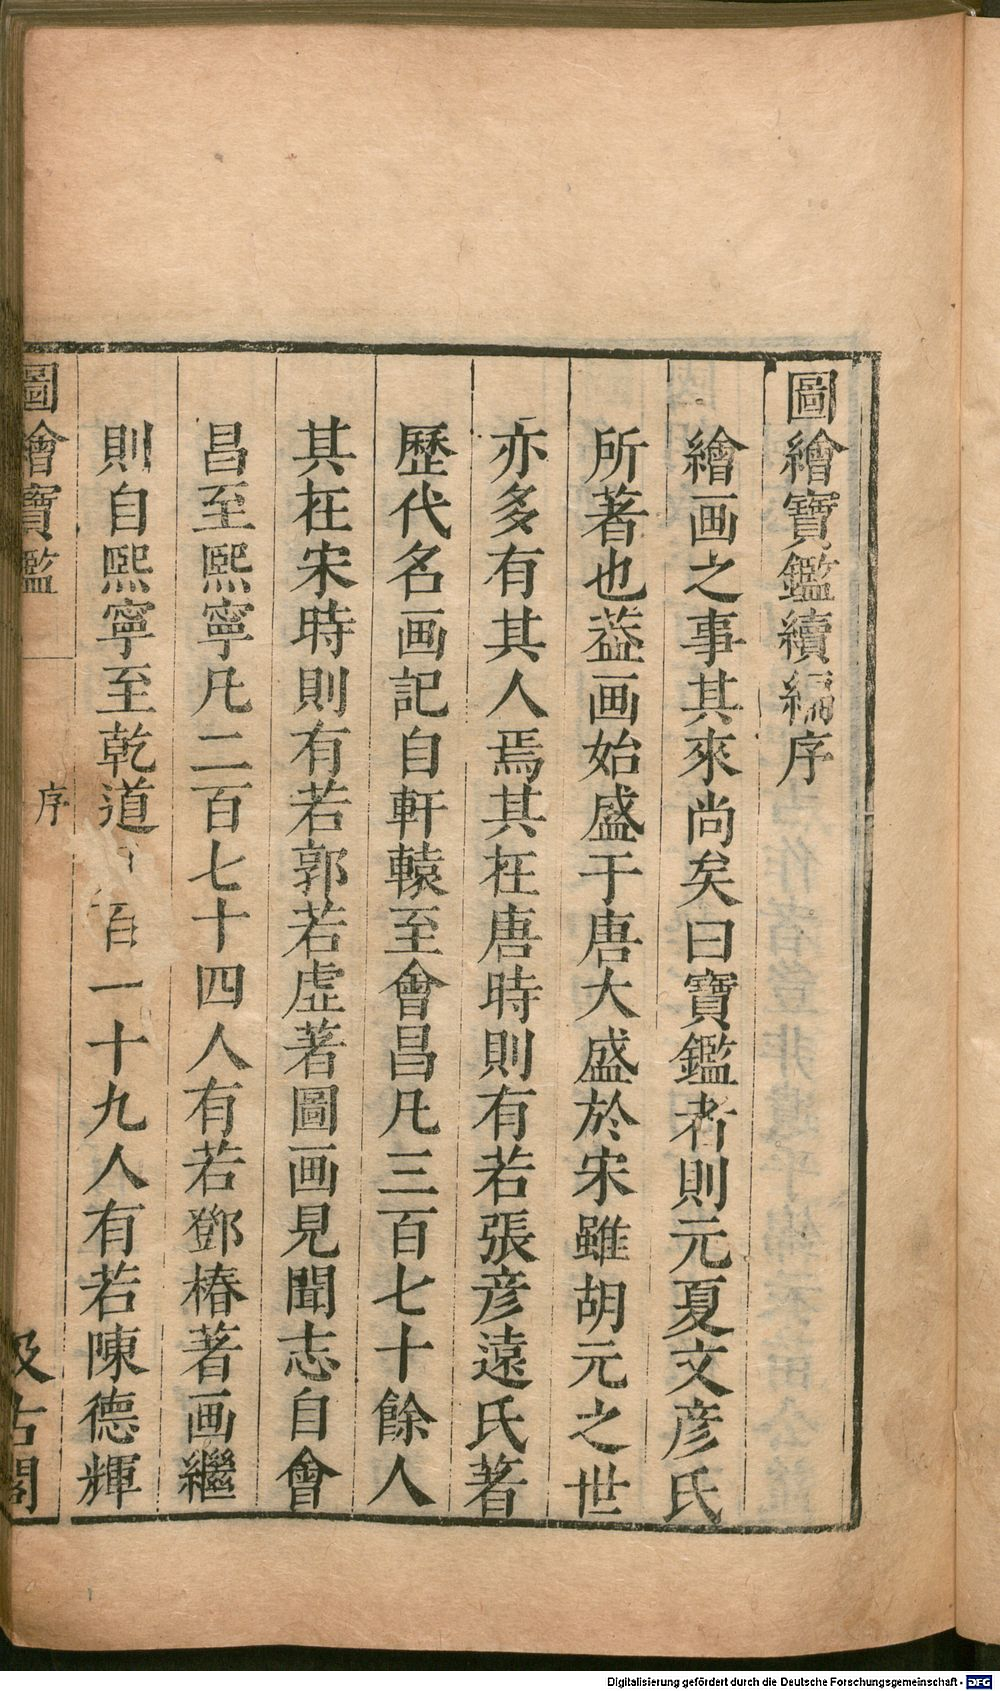 圖繪寶鑑續編序
繪画之事其來尚矣曰寶鑑者則元夏文彦氏
所著也葢画始盛于唐大盛於宋雖胡元之世
亦多有其人焉其在唐時則有若張彦遠氏著
歷代名画記自軒轅至會昌凡三百七十餘人
其在宋時則有若郭若虛著圖画見聞志自會
昌至熙寧凡二百七十四人有若鄧椿著画繼
則自熙寧至乾道 百一十九人有若陳德輝
圖繪寶鑑
序
汲古閣
Digitalisierung gefördert durch die Deutsche Forschungsgemeinschaft - DFG